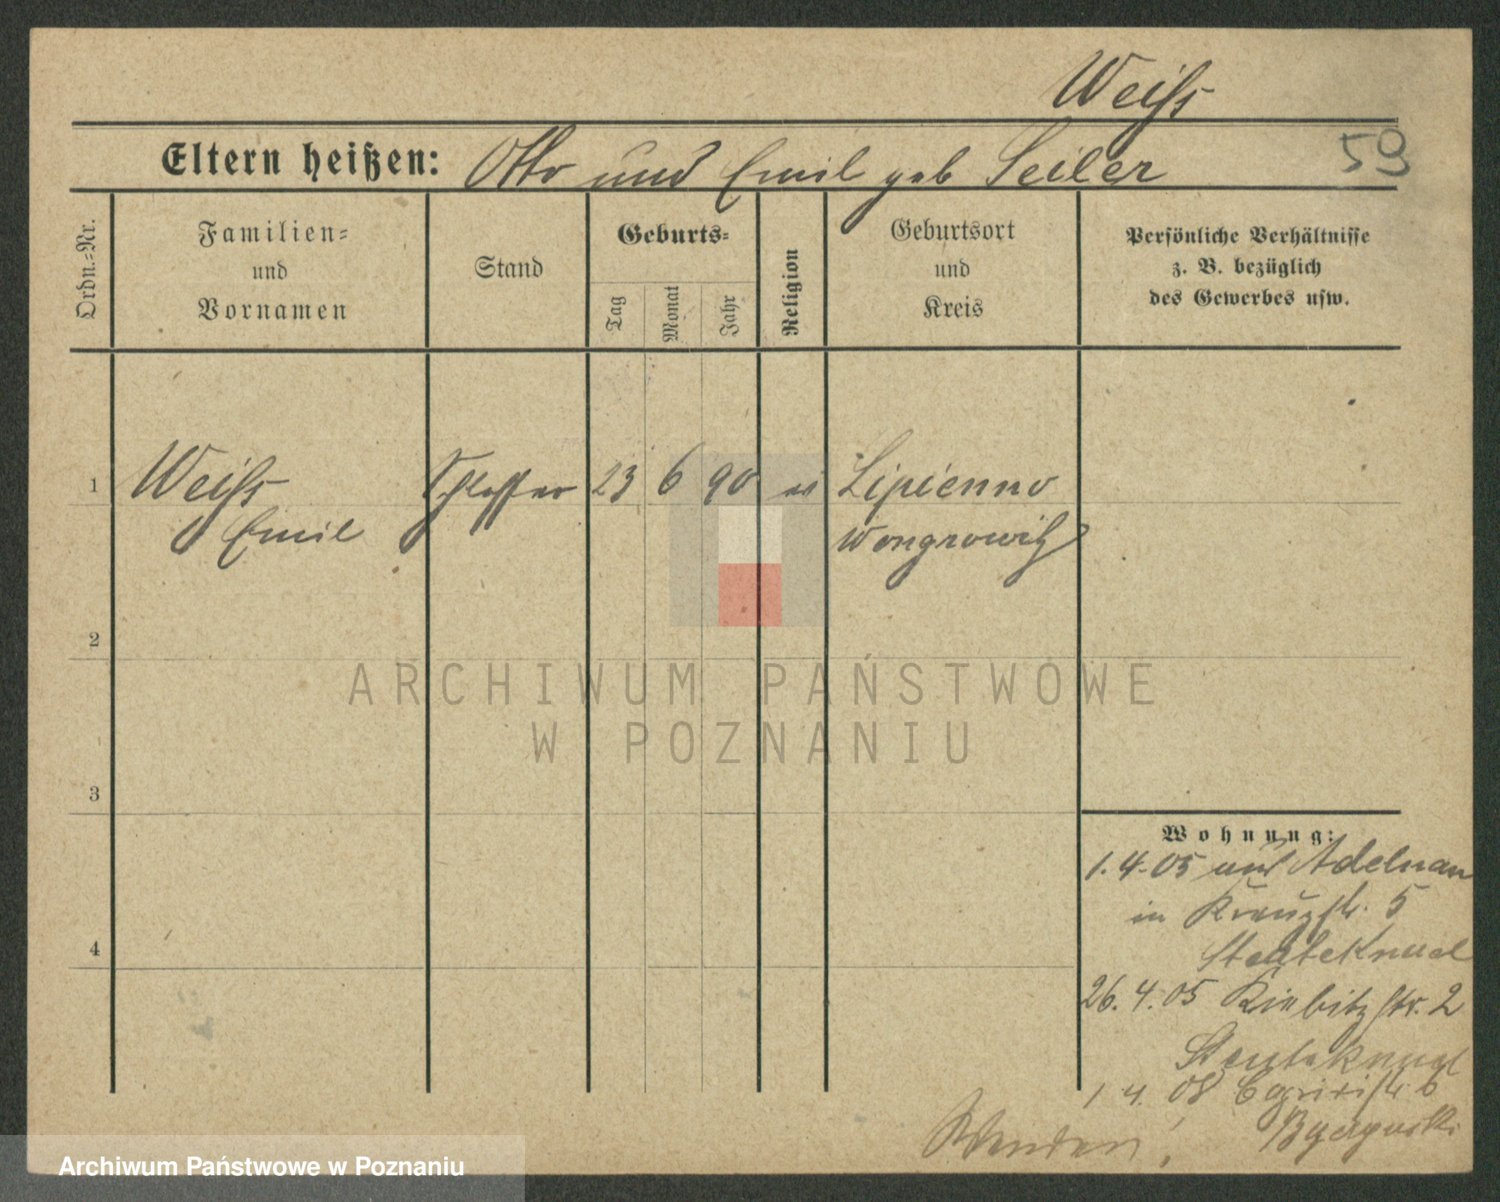 Weiß
59
Eltern heißen: Otto und Emil geb Seiler
Ordn.-Nr.
Familien-
und
Vornamen
Stand
Geburts-
Tag
Monat
Jahr
Religion
Geburtsort
und
Kreis
Persönliche Verhältnisse
z. B. bezüglich
des Gewerbes usw.
1 Weiß Schlosser 23 6 90 Lipienno
Emil Wongrowitz
2
3
4
Wohnung:
1.4.05 Adelnau
in Kreuzstr. 5
26.4.05 Kiebitzstr. 2
1.4.08
Wenden!
ARCHIWUM PAŃSTWOWE
W POZNANIU
Archiwum Państwowe w Poznaniu